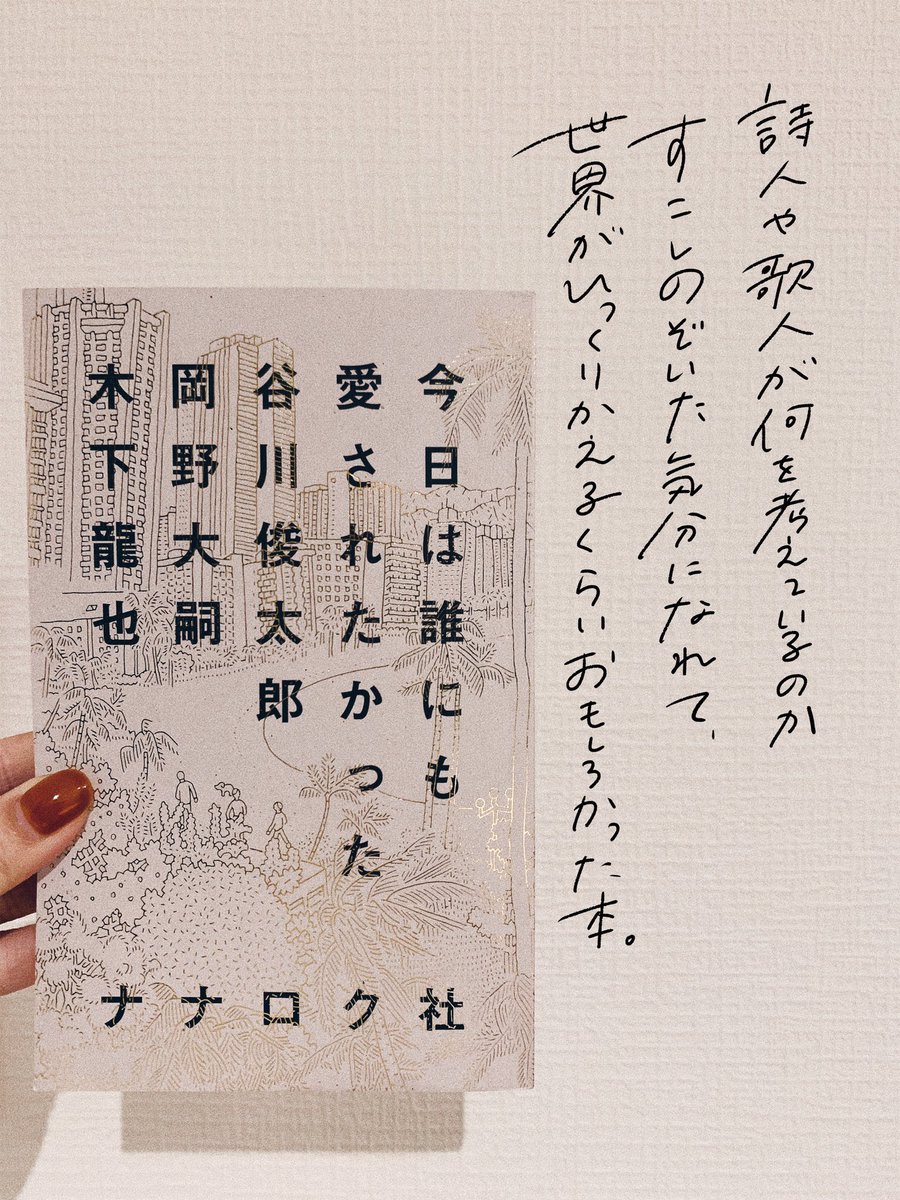 詩人や歌人が何を考えているのか
すこしのぞいた気分になれて、
世界がひっくりかえるくらいおもしろかった本。
今日は誰にも
愛されたかった
谷川俊太郎
岡野大嗣
木下龍也
ナナロク社